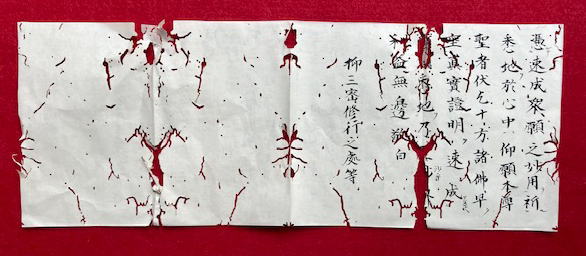 憑速成衆願之功用祈
悉地於心中仰願本尊
聖者伏乞十方諸佛早
垂眞實證明速成
悉地乃
利益無邊敬白
抑三密修行之處等